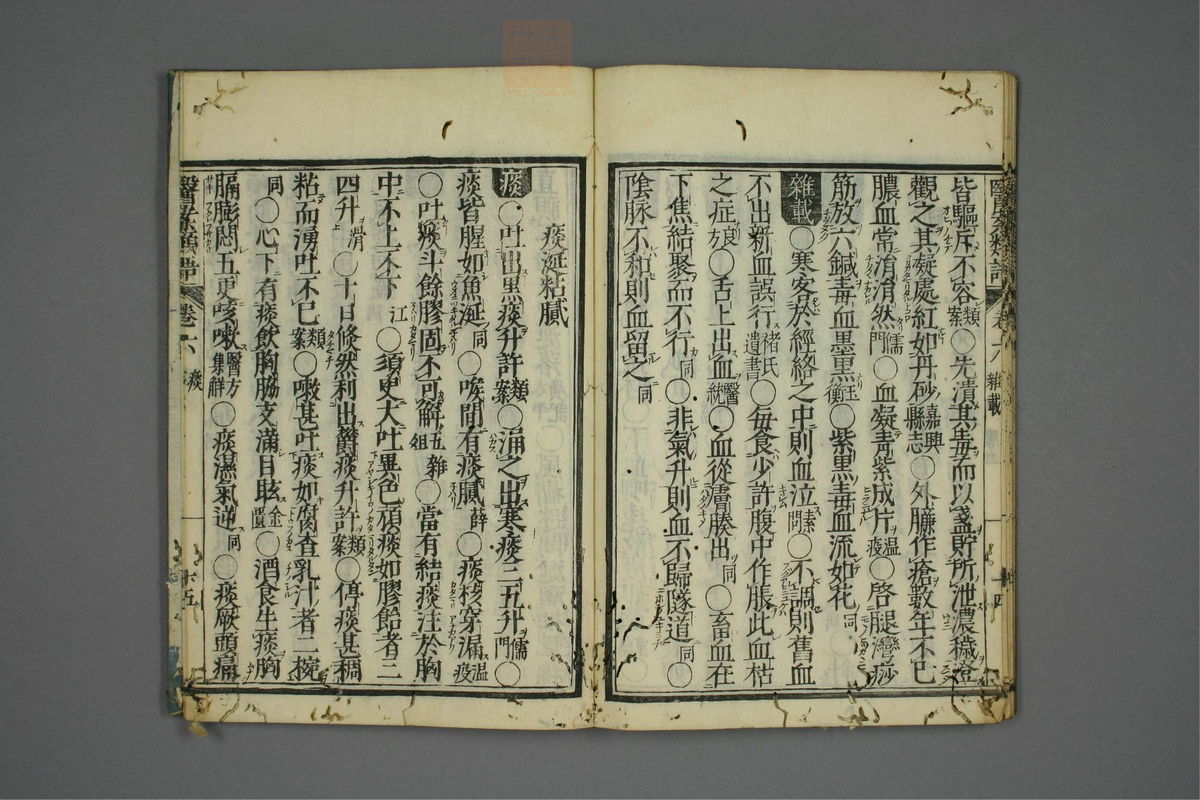 皆驅斥不容類案〇先潰其毒而以盞貯所泄濃穢澄
觀之其凝處紅如丹砂嘉興縣志〇外臁作瘡數年不已
膿血常㳙㳙然儒門〇血凝靑紫成片溫疫〇啓腿灣痧
筋放六鍼毒血墨黑玉衡〇紫黑毒血流如花同
雜載〇寒客於經絡之中則血泣素問〇不調則舊血
不出新血誤行褚氏遺書〇每食少許腹中作脹此血枯
之症方〇舌上出血醫統〇血從膚腠出同〇畜血在
下焦結聚而不行同〇非氣升則血不歸隧道同〇
陰脉不和則血留之同
痰涎粘膩
痰〇吐出黑痰升許類案〇涌之出寒痰三五升儒門〇
痰皆腥如魚涎同〇喉間有痰膩薛〇痰核穿漏溫疫
〇吐痰斗餘膠固不可解雜〇當有結痰注於胸
中不上不下江〇須臾大吐異色頑痰如膠飴者三
四升滑〇十日倏然利出欝痰升許類案〇停痰甚稠
粘而湧吐不已類案〇嗽甚吐痰如腐查乳汁者二椀
同〇心下有痰飮胸脇支滿目眩金匱〇酒食生痰胸
膈膨悶五更咳嗽醫方集觧〇痰濕氣逆同〇痰厥頭痛
卷六 雜載 十四
卷六 痰 十五